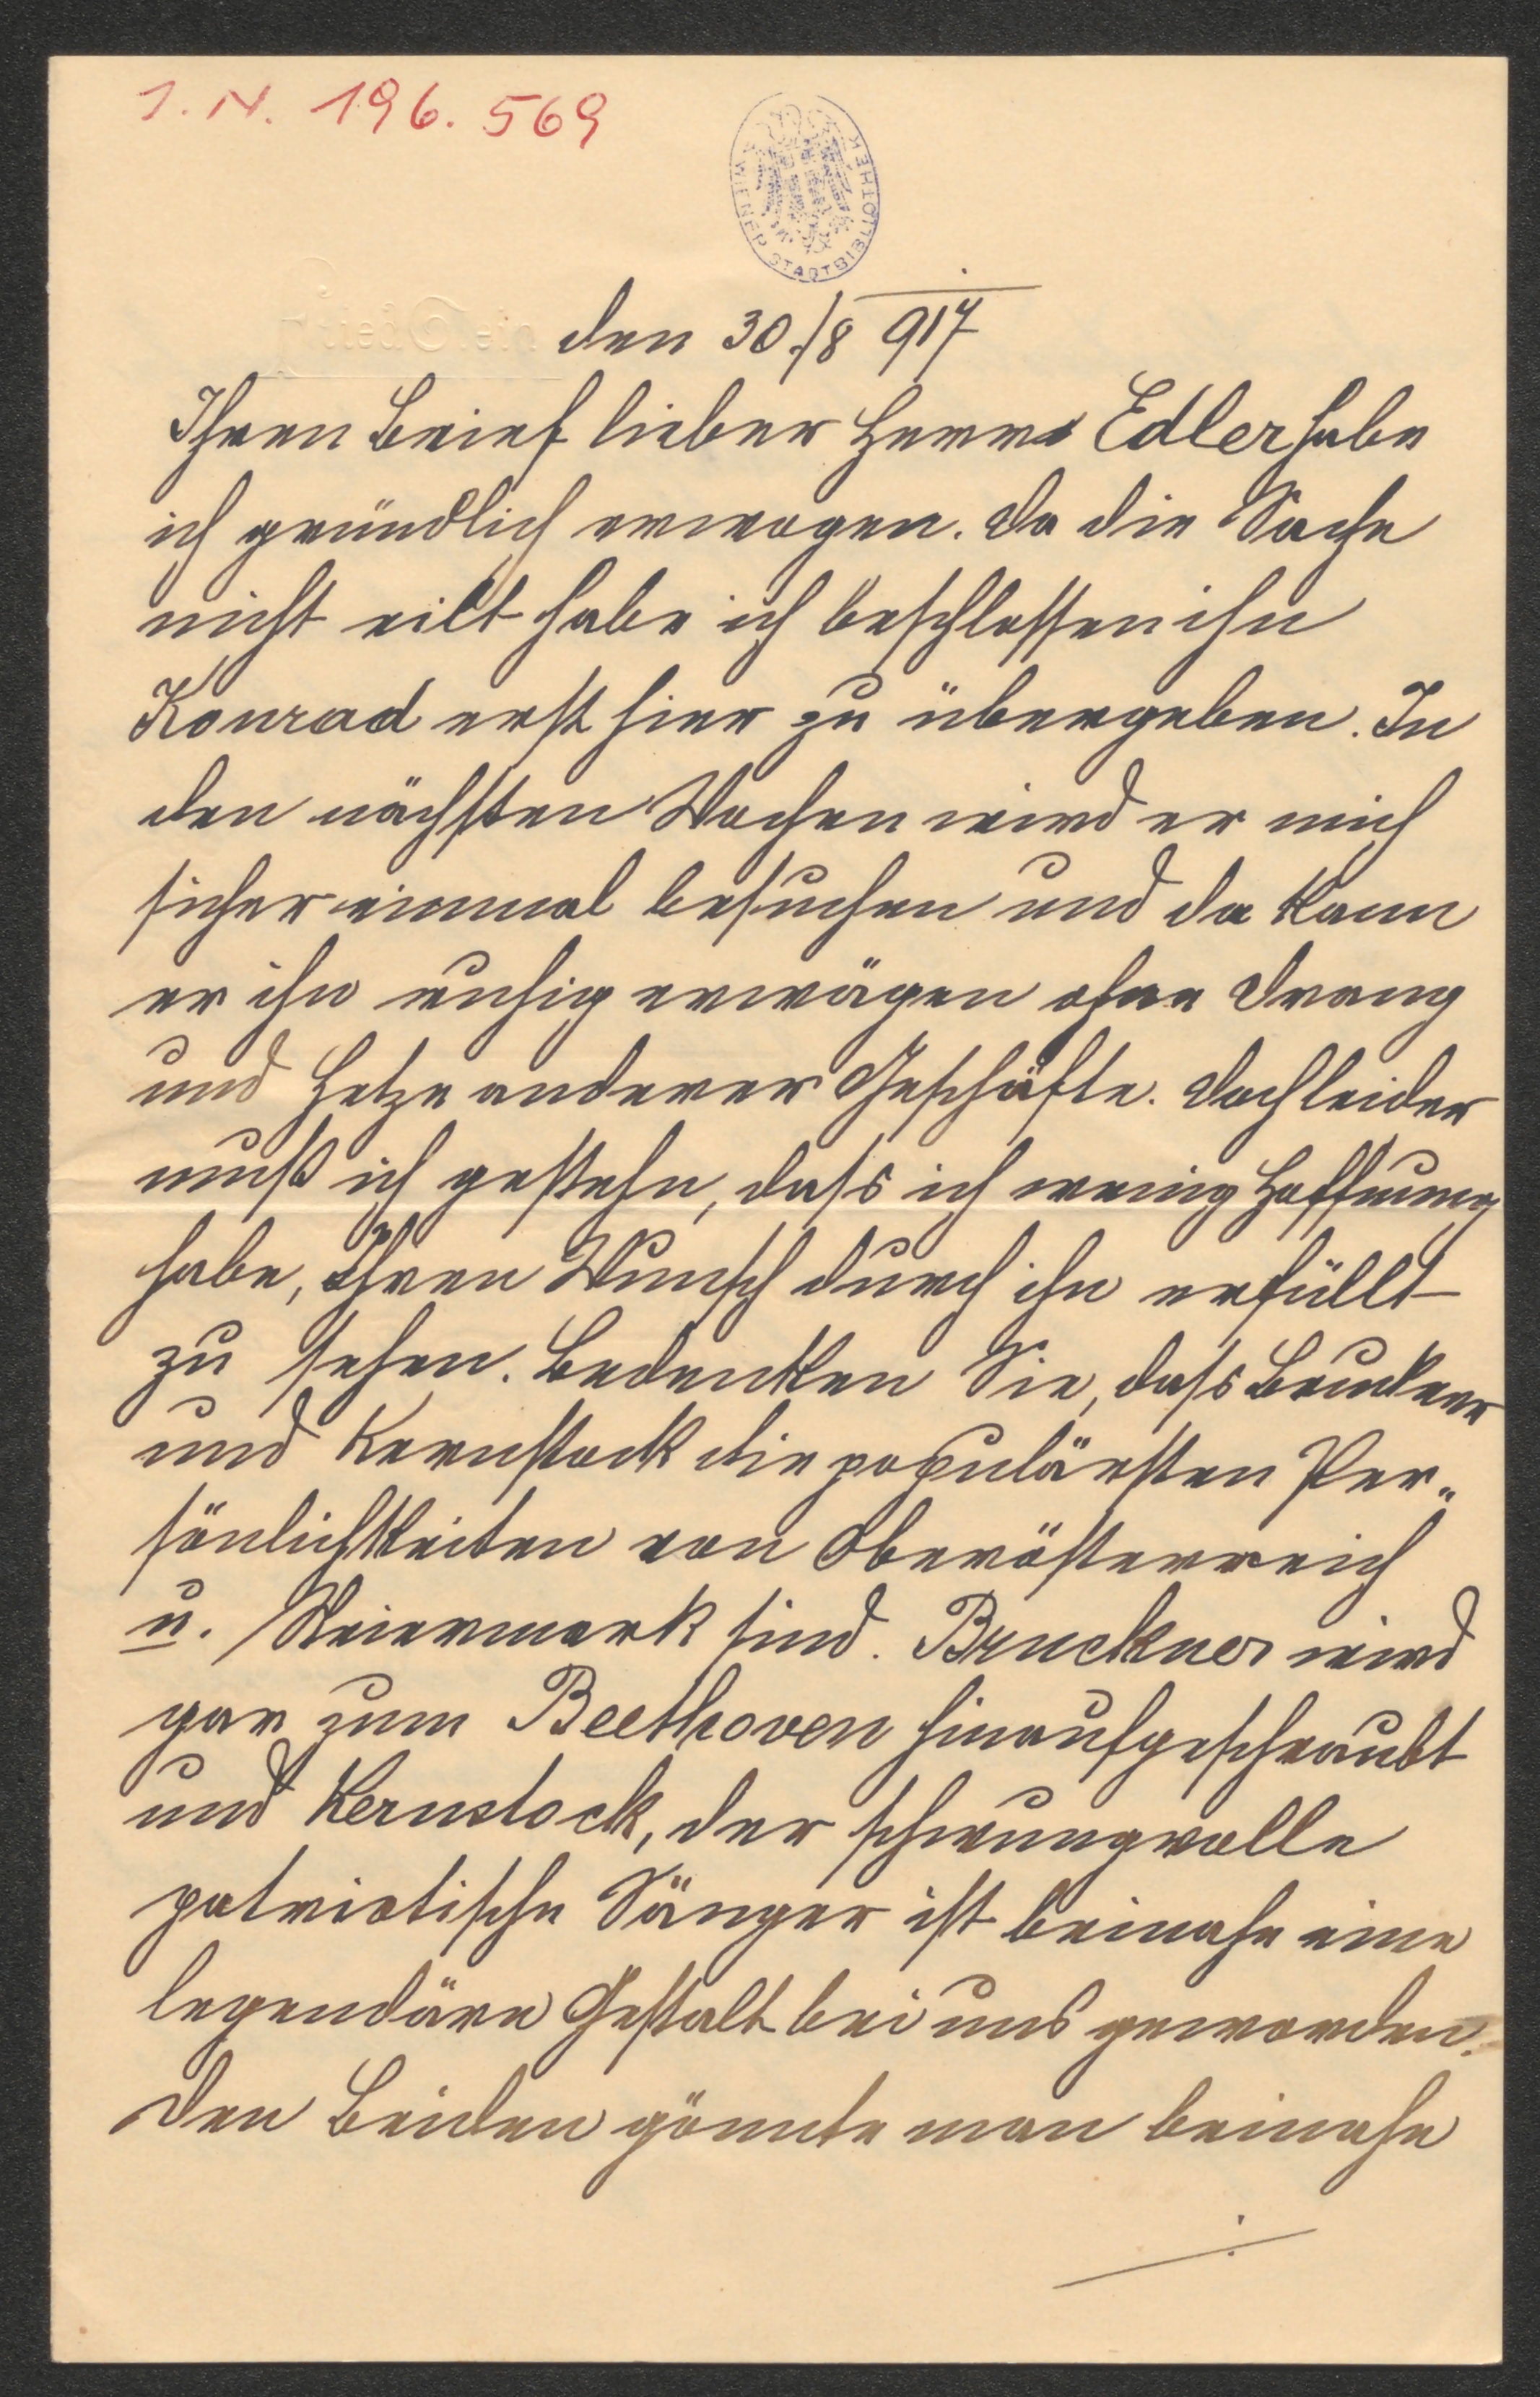 I. N. 196.569
WIENER STADTBIBLIOTHEK
den 30./8 917
Ihren Brief lieber Herr Edler habe
ich gründlich erwogen. Da die Sache
nicht eilt habe ich beschlossen ihn
Konrad erst hier zu übergeben. In
den nächsten Wochen wird er mich
sicher einmal besuchen und da kann
er ihn ruhig erwägen ohne Drang
und Hetze anderer Geschäfte. Doch leider
muß ich gestehn, dass ich wenig Hoffnung
habe, Ihren Wunsch durch ihn erfüllt
zu sehen. Bedenken Sie, dass Bruckner
und Kernstock die populärsten Per„
sönlichkeiten von Oberösterreich
u. Steiermark sind. Bruckner wird
gar zum Beethoven hinaufgeschraubt
und Kernstock, der schwungvolle
patriotische Sänger ist beinahe eine
legendäre Gestalt bei uns geworden.
Den Beiden gönnte man beinahe